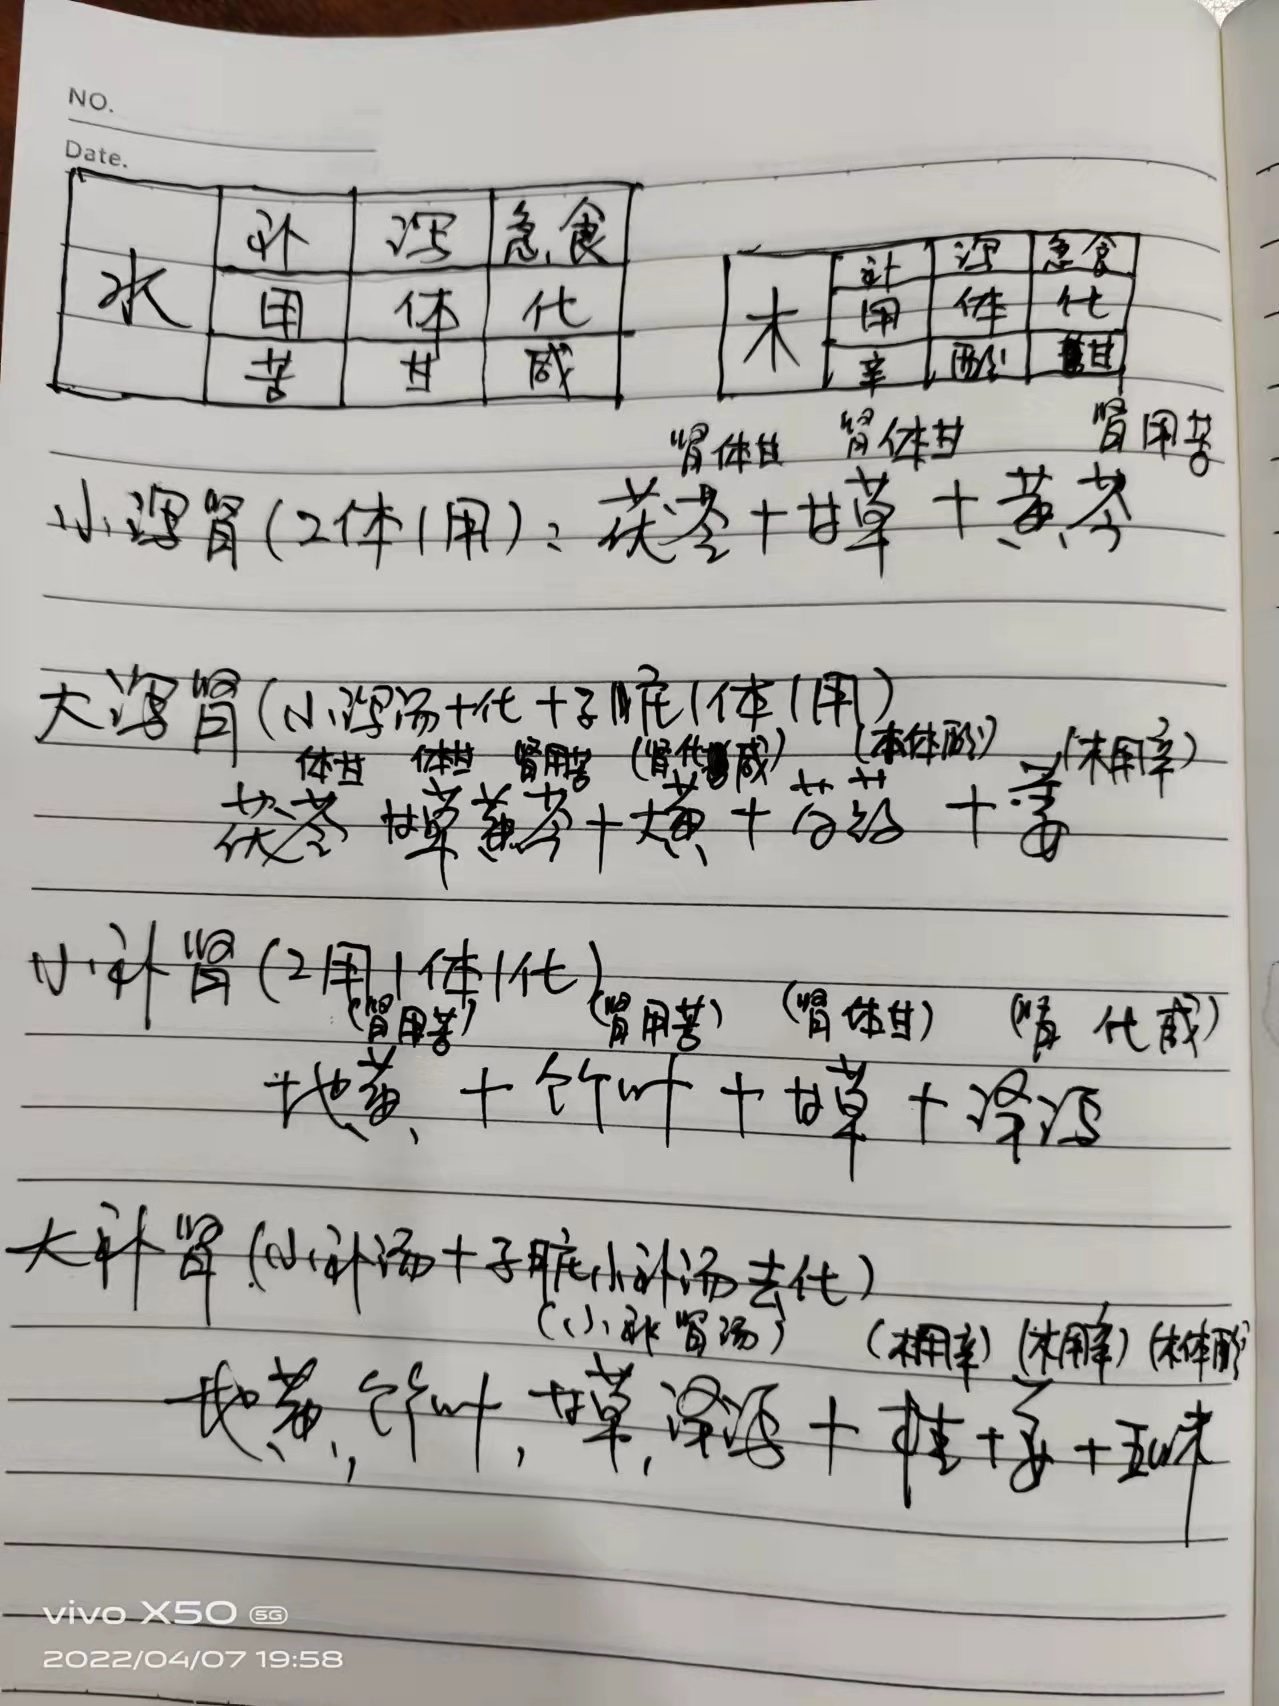 NO.
Date.
水 补 泻 急食
用 体 代
苦 甘 咸
木 补 泻 急食
用 体 代
辛 酸 甘
肾体甘 肾体甘 肾用苦
小泻肾(2体1用):茯苓+甘草+黄芩
大泻肾(小泻汤+化+子脏1体1用)
体甘 体甘 肾用苦 (肾化咸) (木体酸) (木用辛)
茯苓 甘草黄芩+大黄+芍药+姜
小补肾(2用1体1化)
(肾用苦) (肾用苦) (肾体甘) (肾化咸)
地黄+竹叶+甘草+泽泻
大补肾(小补汤+子脏小补汤去化)
(小补肾汤) (木用辛)(木用辛)(木体酸)
地黄,竹叶,甘草,泽泻+桂+姜+五味
vivo X50 5G
2022/04/07 19:58